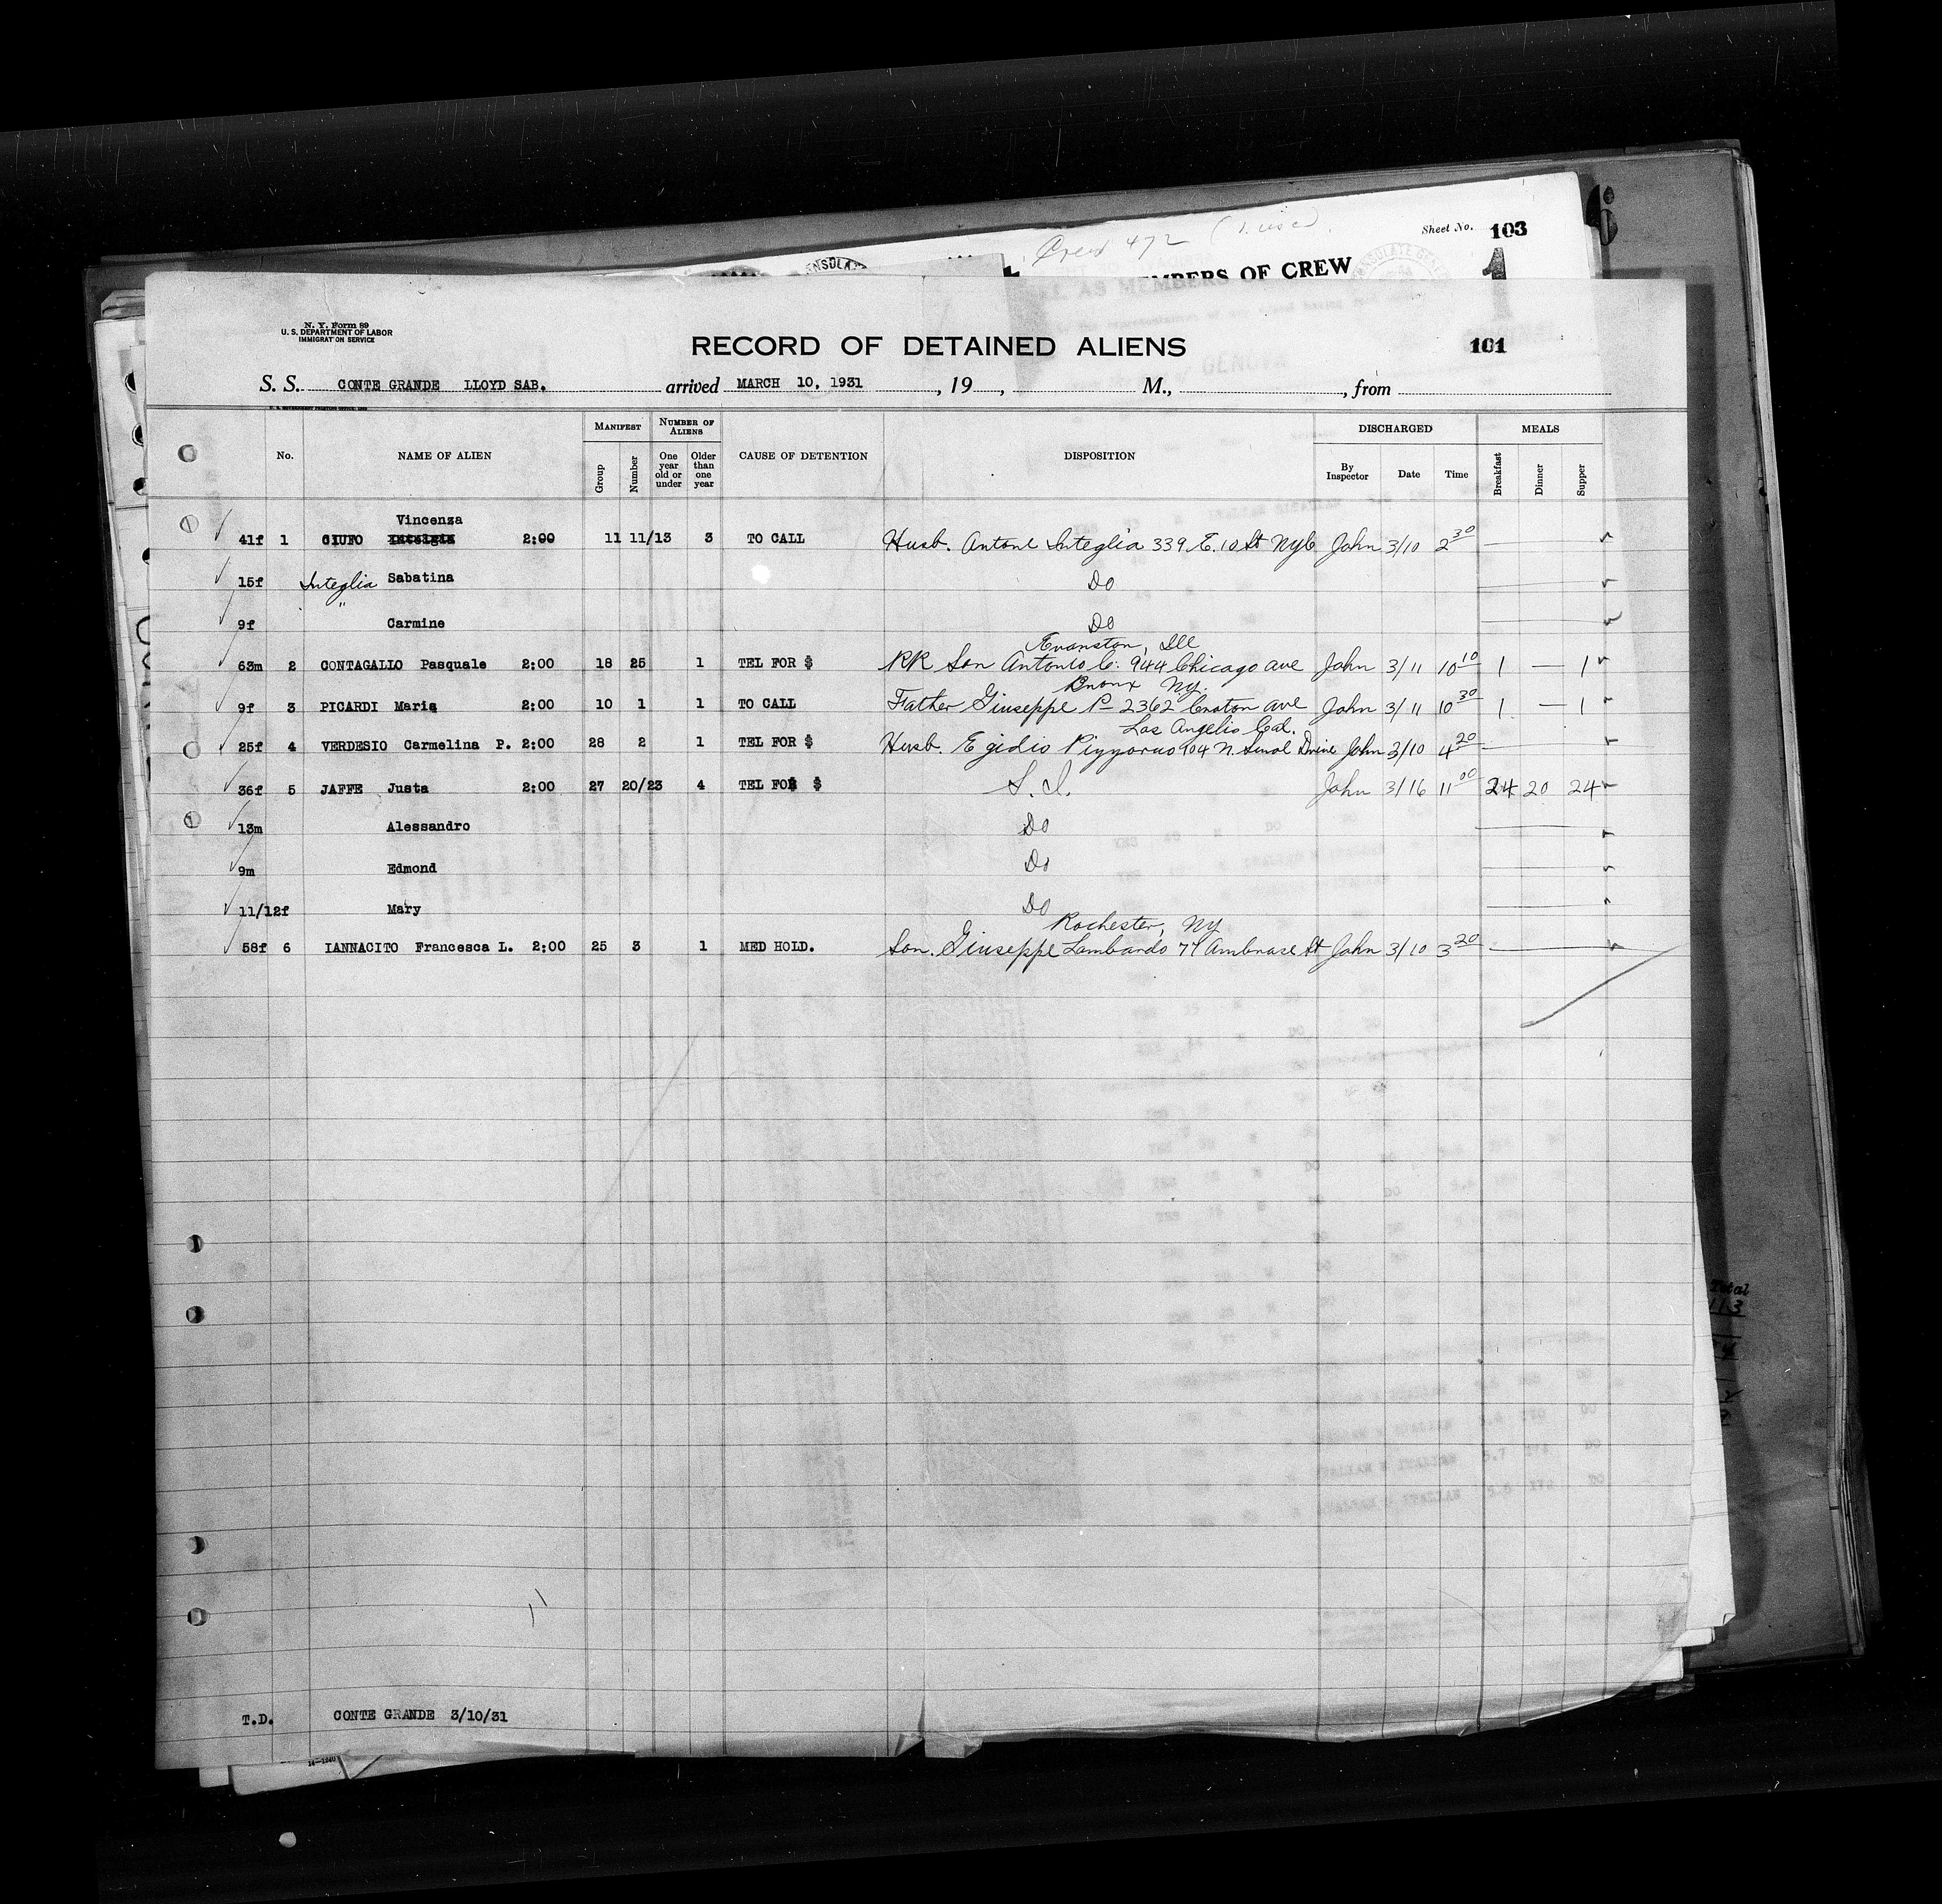 Sheet No. 103
Crew 472
MEMBERS OF CREW
1
N. Y. Form 89
U. S. DEPARTMENT OF LABOR
IMMIGRATION SERVICE
RECORD OF DETAINED ALIENS 101
S. S. CONTE GRANDE LLOYD SAB. arrived MARCH 10, 1931, 19 , M., , from
MANIFEST NUMBER OF ALIENS DISCHARGED MEALS
No. NAME OF ALIEN Group Number One year old or under Older than one year CAUSE OF DETENTION DISPOSITION By Inspector Date Time Breakfast Dinner Supper
Vincenza
41f 1 GIUFO 2:00 11 11/13 3 TO CALL Husb. Antone Integlia 339 E. 10 St NYC John 3/10 2 30
15f Integlia Sabatina Do
9f " Carmine Do
Evanston, Ill
63m 2 CONTAGALLO Pasquale 2:00 18 25 1 TEL FOR $ RR Son Antonio C. 944 Chicago ave John 3/11 10 10 1 — 1
Bronx Ny.
9f 3 PICARDI Maria 2:00 10 1 1 TO CALL Father Giuseppe P— 2362 Croton ave John 3/11 10 30 1 — 1
Los Angelio Cal.
25f 4 VERDESIO Carmelina P. 2:00 28 2 1 TEL FOR $ Husb. Egidio 904 N. Drive John 3/10 4 20
36f 5 JAFFE Justa 2:00 27 20/23 4 TEL FOR $ S. I. John 3/16 11 00 24 20 24
13m Alessandro Do
9m Edmond Do
11/12f Mary Do
Rochester, Ny
58f 6 IANNACITO Francesca L. 2:00 25 3 1 MED HOLD. Son. Giuseppe Lombardo 77 Ambrose St John 3/10 3 20
Total
113
T.D. CONTE GRANDE 3/10/31